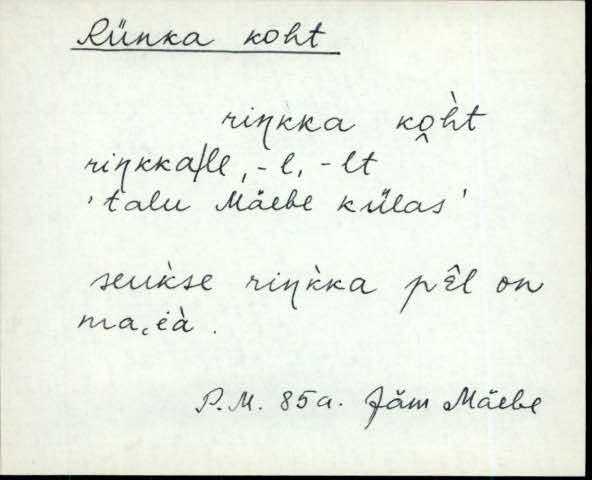 Rünka koht
riŋkka kọ̭h̀t
riŋkka/le, -l, -lt
'talu Mäebe külas'
seuk̀se riŋk̀ka pêl on
ma,ià.
P.M. 85a. Jäm Mäebe